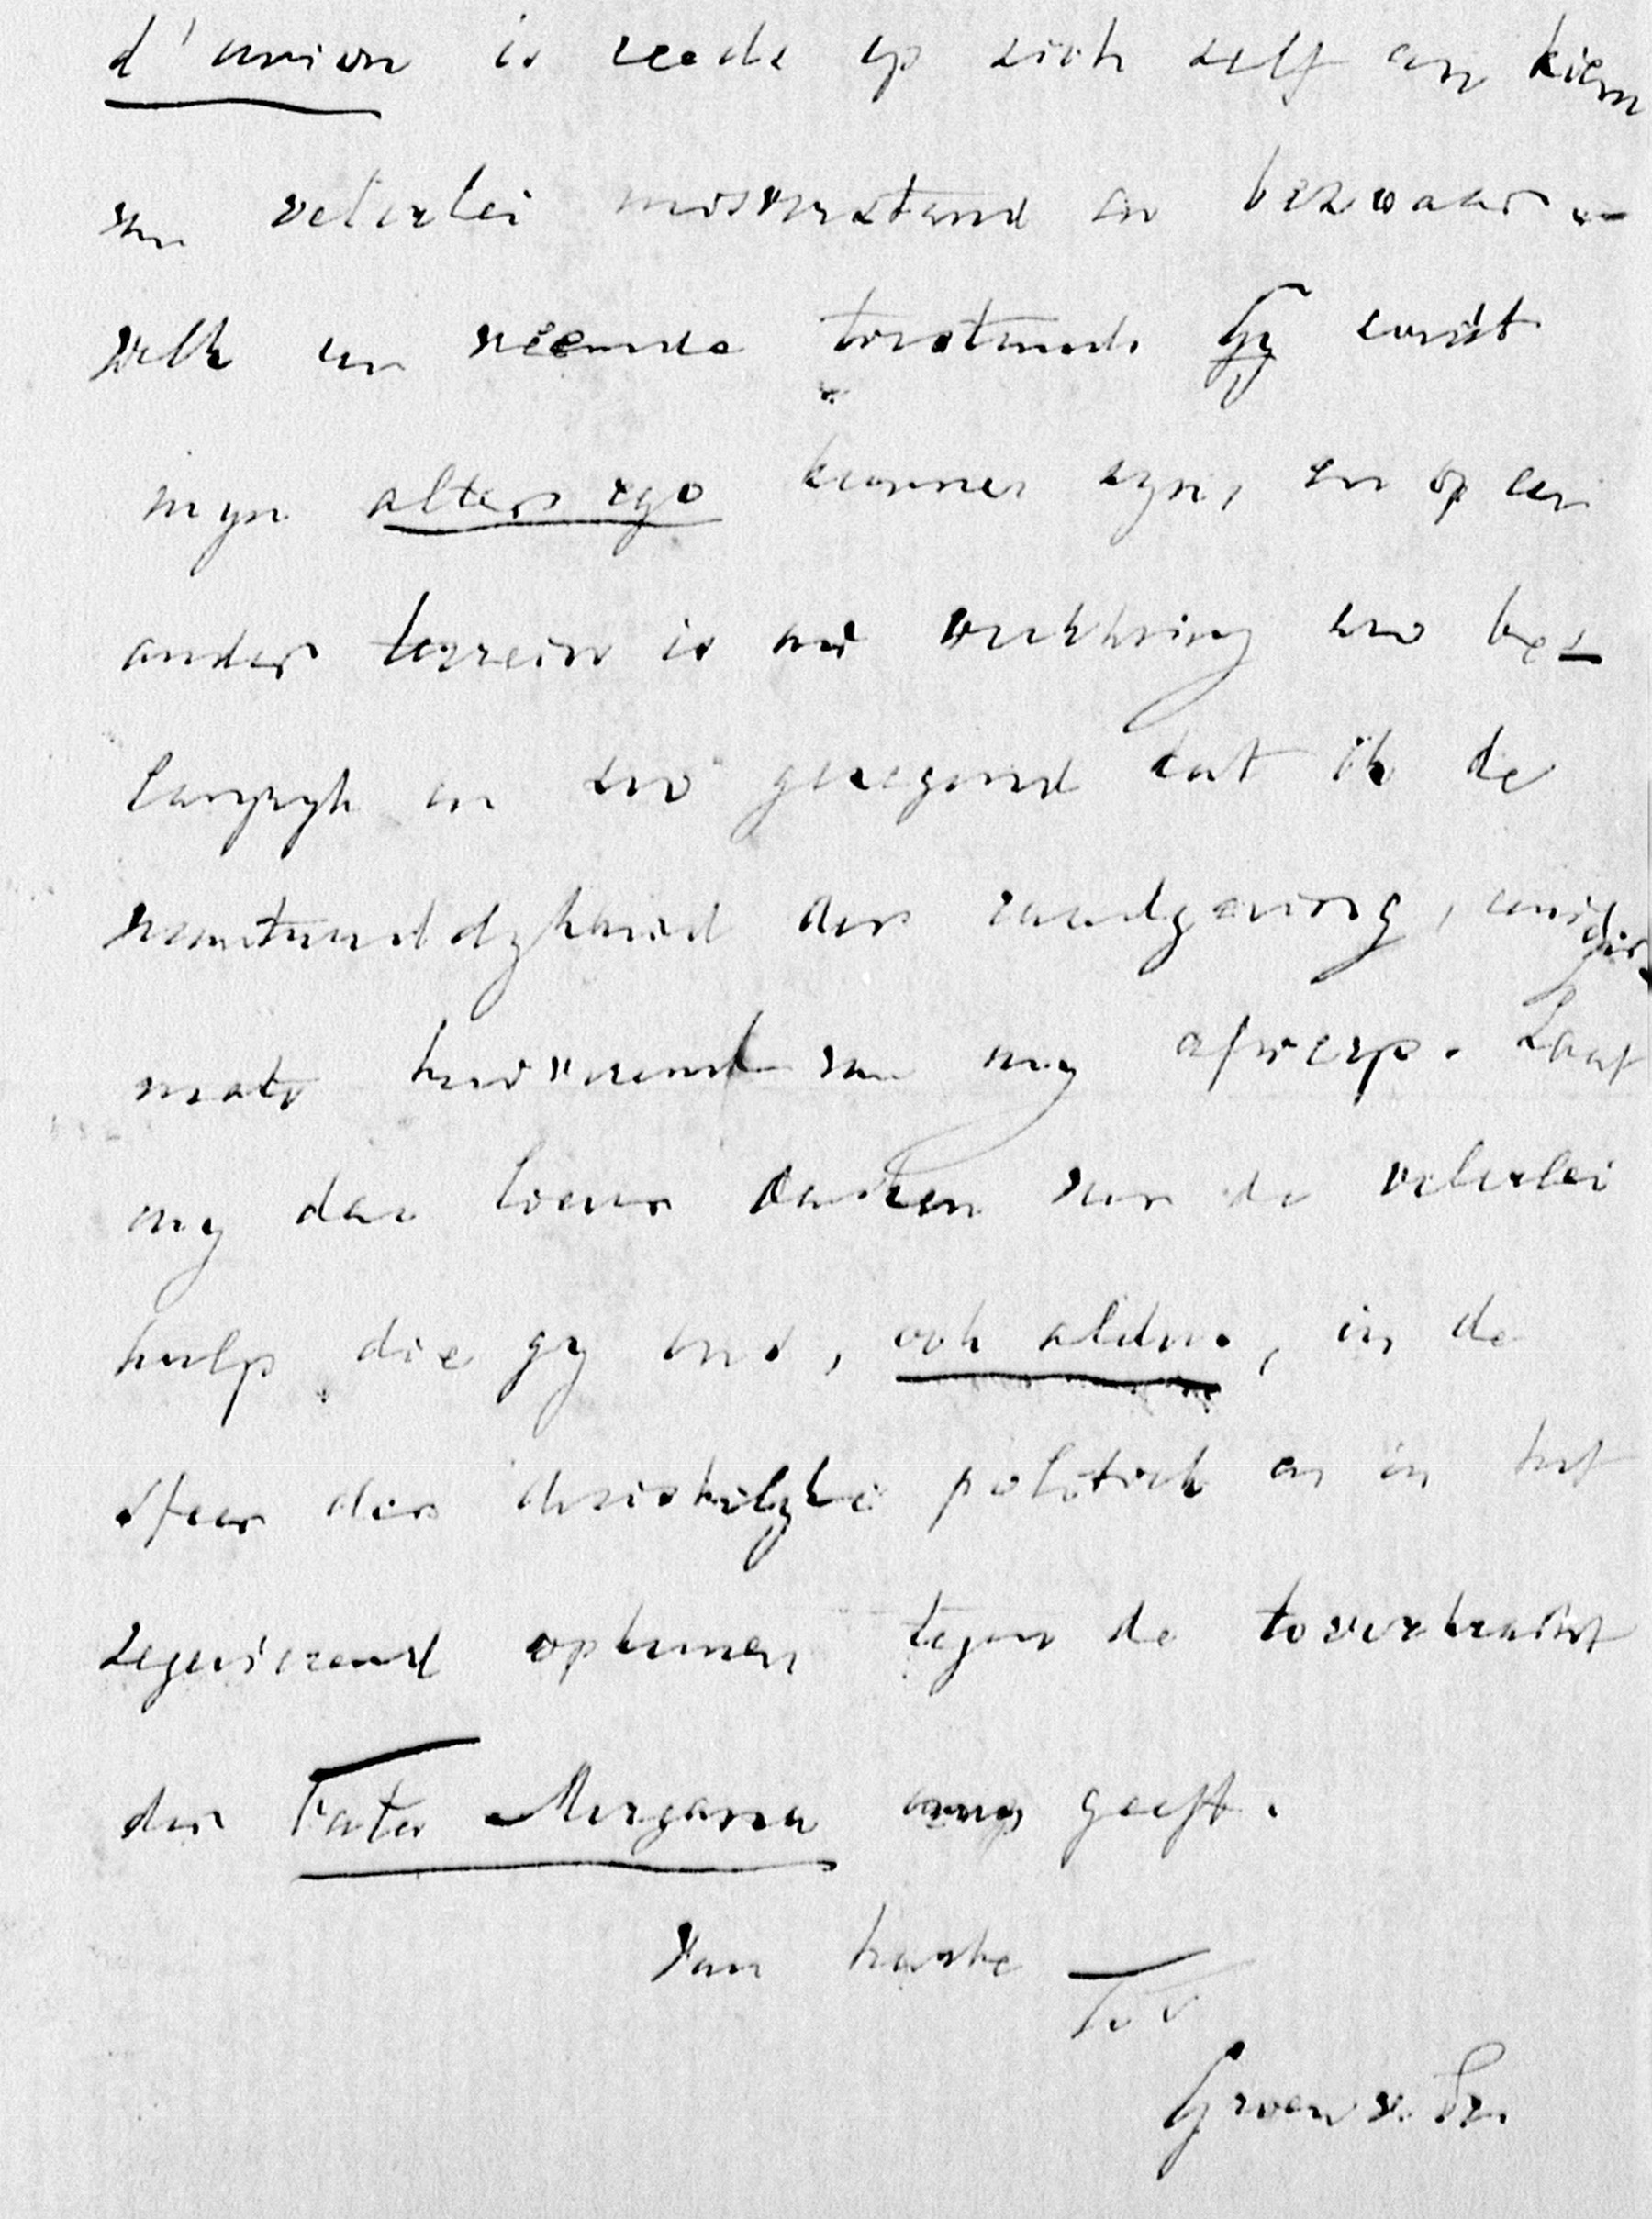 d'union is reeds op zich zelf een kiem
van velerlei misverstand en bezwaar -
welk een vreemde toestand! Gy zoudt
myn alter ego kunnen zyn, en op een
ander terrein is uw werkkring zoo be-
langryk en zoo gezegend dat ik de
verantwoordelykheid der raadgeving, eenig
mate huiverend van my afwerp. Laat
my dan liever danken voor de velerlei
hulp die gy ons, ook aldus, in de
sfeer der christelyke politiek en in het
zegevierend opkomen tegen de toverkracht
der Fata Morgana geeft.
Van harte
T. v
Groen v. Pr.